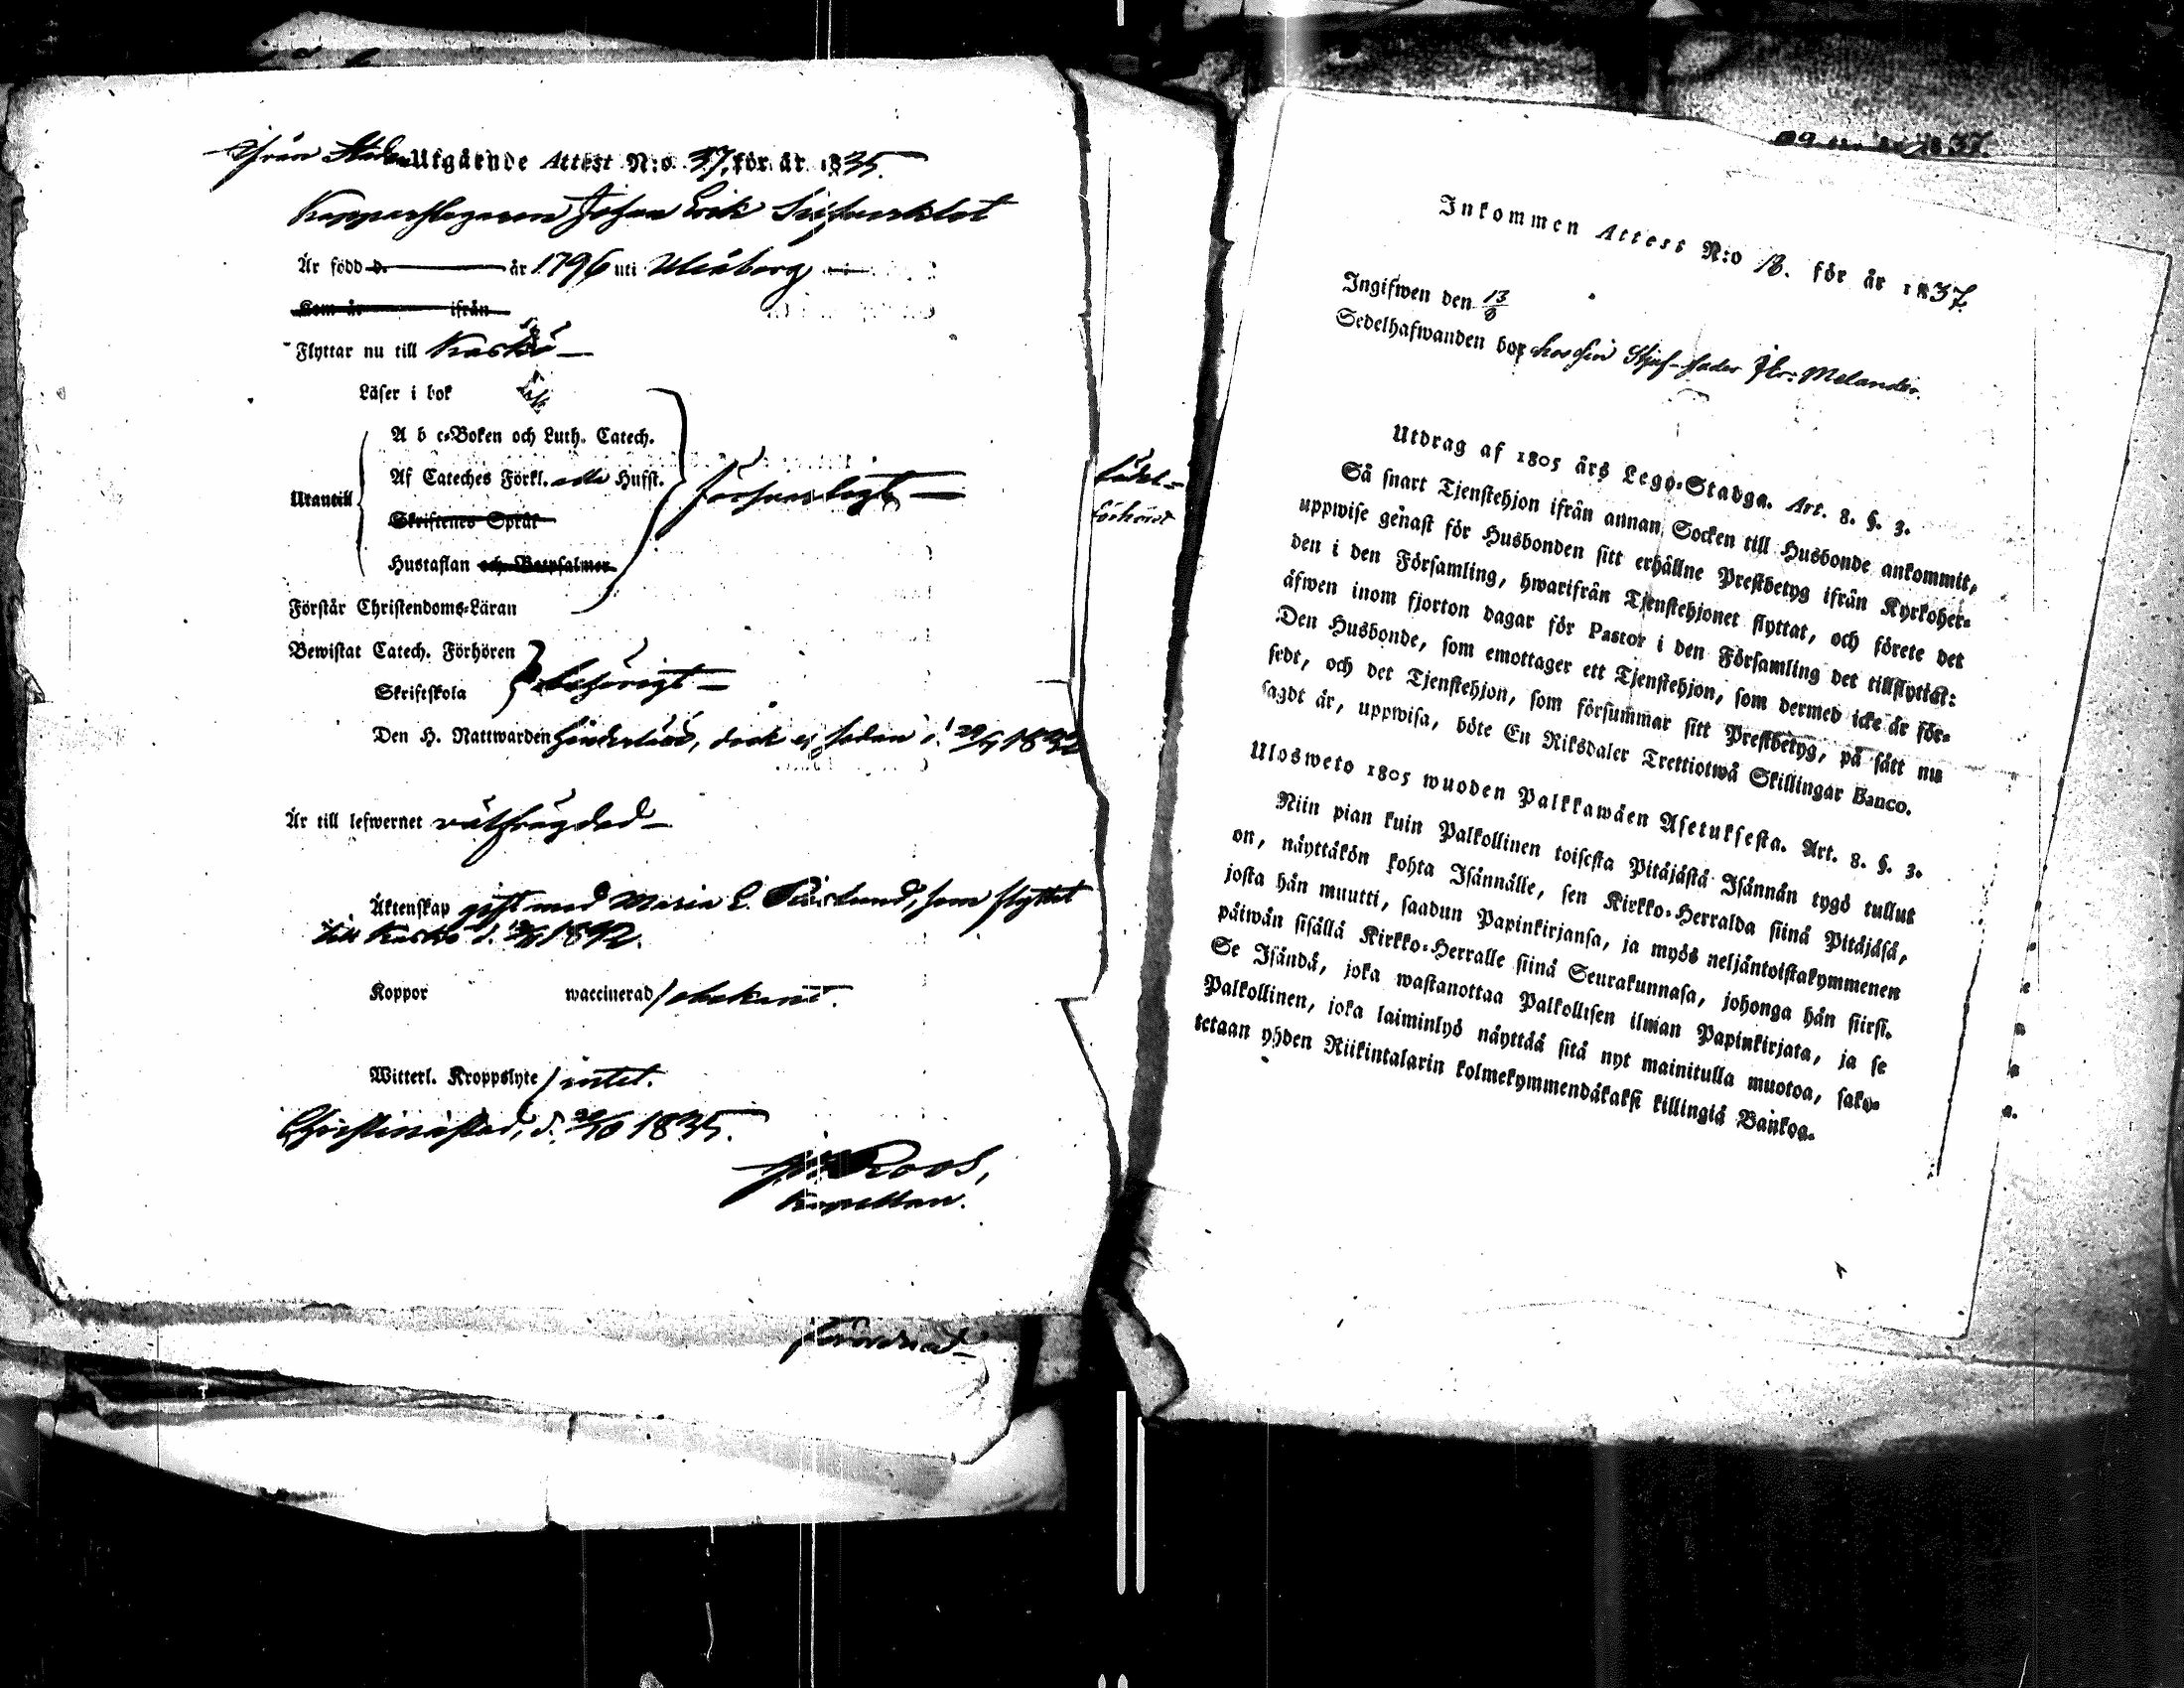 ifrån Staden Utgående Attest N:o 37, för år 1835.
Kopparslagaren Johan Erik
Är född d. år 1796 uti Uleåborg
Kom år ifrån
Flyttar nu till Kaskö
Läser i bok
A b c-Boken och Luth. Catech.
Af Cateches Förkl. Husft.
Utantill försvarligt
Skriftenes Språk
Hustaflan och Botpsalmer
Förstår Christendoms-Läran
Bewistat Catech. Förhören
behörigt
Skriftskola
Den H. Nattwarden, dock ej sedan d. 1832
Är till lefwernet wälfrägdad
Äktenskap gift med Maria L., som flyttat
till Kaskö d.
Koppor waccinerad / obekant.
Witterl. Kroppslyte / intet.
Christinestad, d. 1835.
Roos,
Kapellan.
1837.
Inkommen Attest N:o 13. för år 1837.
Ingifwen den 13
Sedelhafwanden bor hos sin Styf-fader Melander.
Utdrag af 1805 års Lego-Stadga. Art. 8. §. 3.
Så snart Tjenstehjon ifrån annan Socken till Husbonde ankommit,
uppwise genast för Husbonden sitt erhållne Prestbetyg ifrån Kyrkoher-
den i den Församling, hwarifrån Tjenstehjonet flyttat, och förete det
äfwen inom fjorton dagar för Pastor i den Församling det tillflyttat:
Den Husbonde, som emottager ett Tjenstehjon, som dermed icke är för-
sedt, och det Tjenstehjon, som försummar sitt Prestbetyg, på sätt nu
sagdt är, uppwisa, böte En Riksdaler Trettiotwå Skillingar Banco.
Ulosweto 1805 wuoden Palkkawäen Asetuksesta. Art. 8. §. 3.
Niin pian kuin Palkollinen toisesta Pitäjästä Isännän tygö tullut
on, näyttäkön kohta Isännälle, sen Kirkko-Herralda siinä Pitäjäsä,
josta hän muutti, saadun Papinkirjansa, ja myös neljäntoistakymmenen
päiwän sisällä Kirkko-Herralle siinä Seurakunnasa, johonga hän siirsi.
Se Isändä, joka wastanottaa Palkollisen ilman Papinkirjata, ja se
Palkollinen, joka laiminlyö näyttää sitä nyt mainitulla muotoa, sako-
tetaan yhden Riikintalarin kolmekymmendäkaksi killingiä Bankoa.